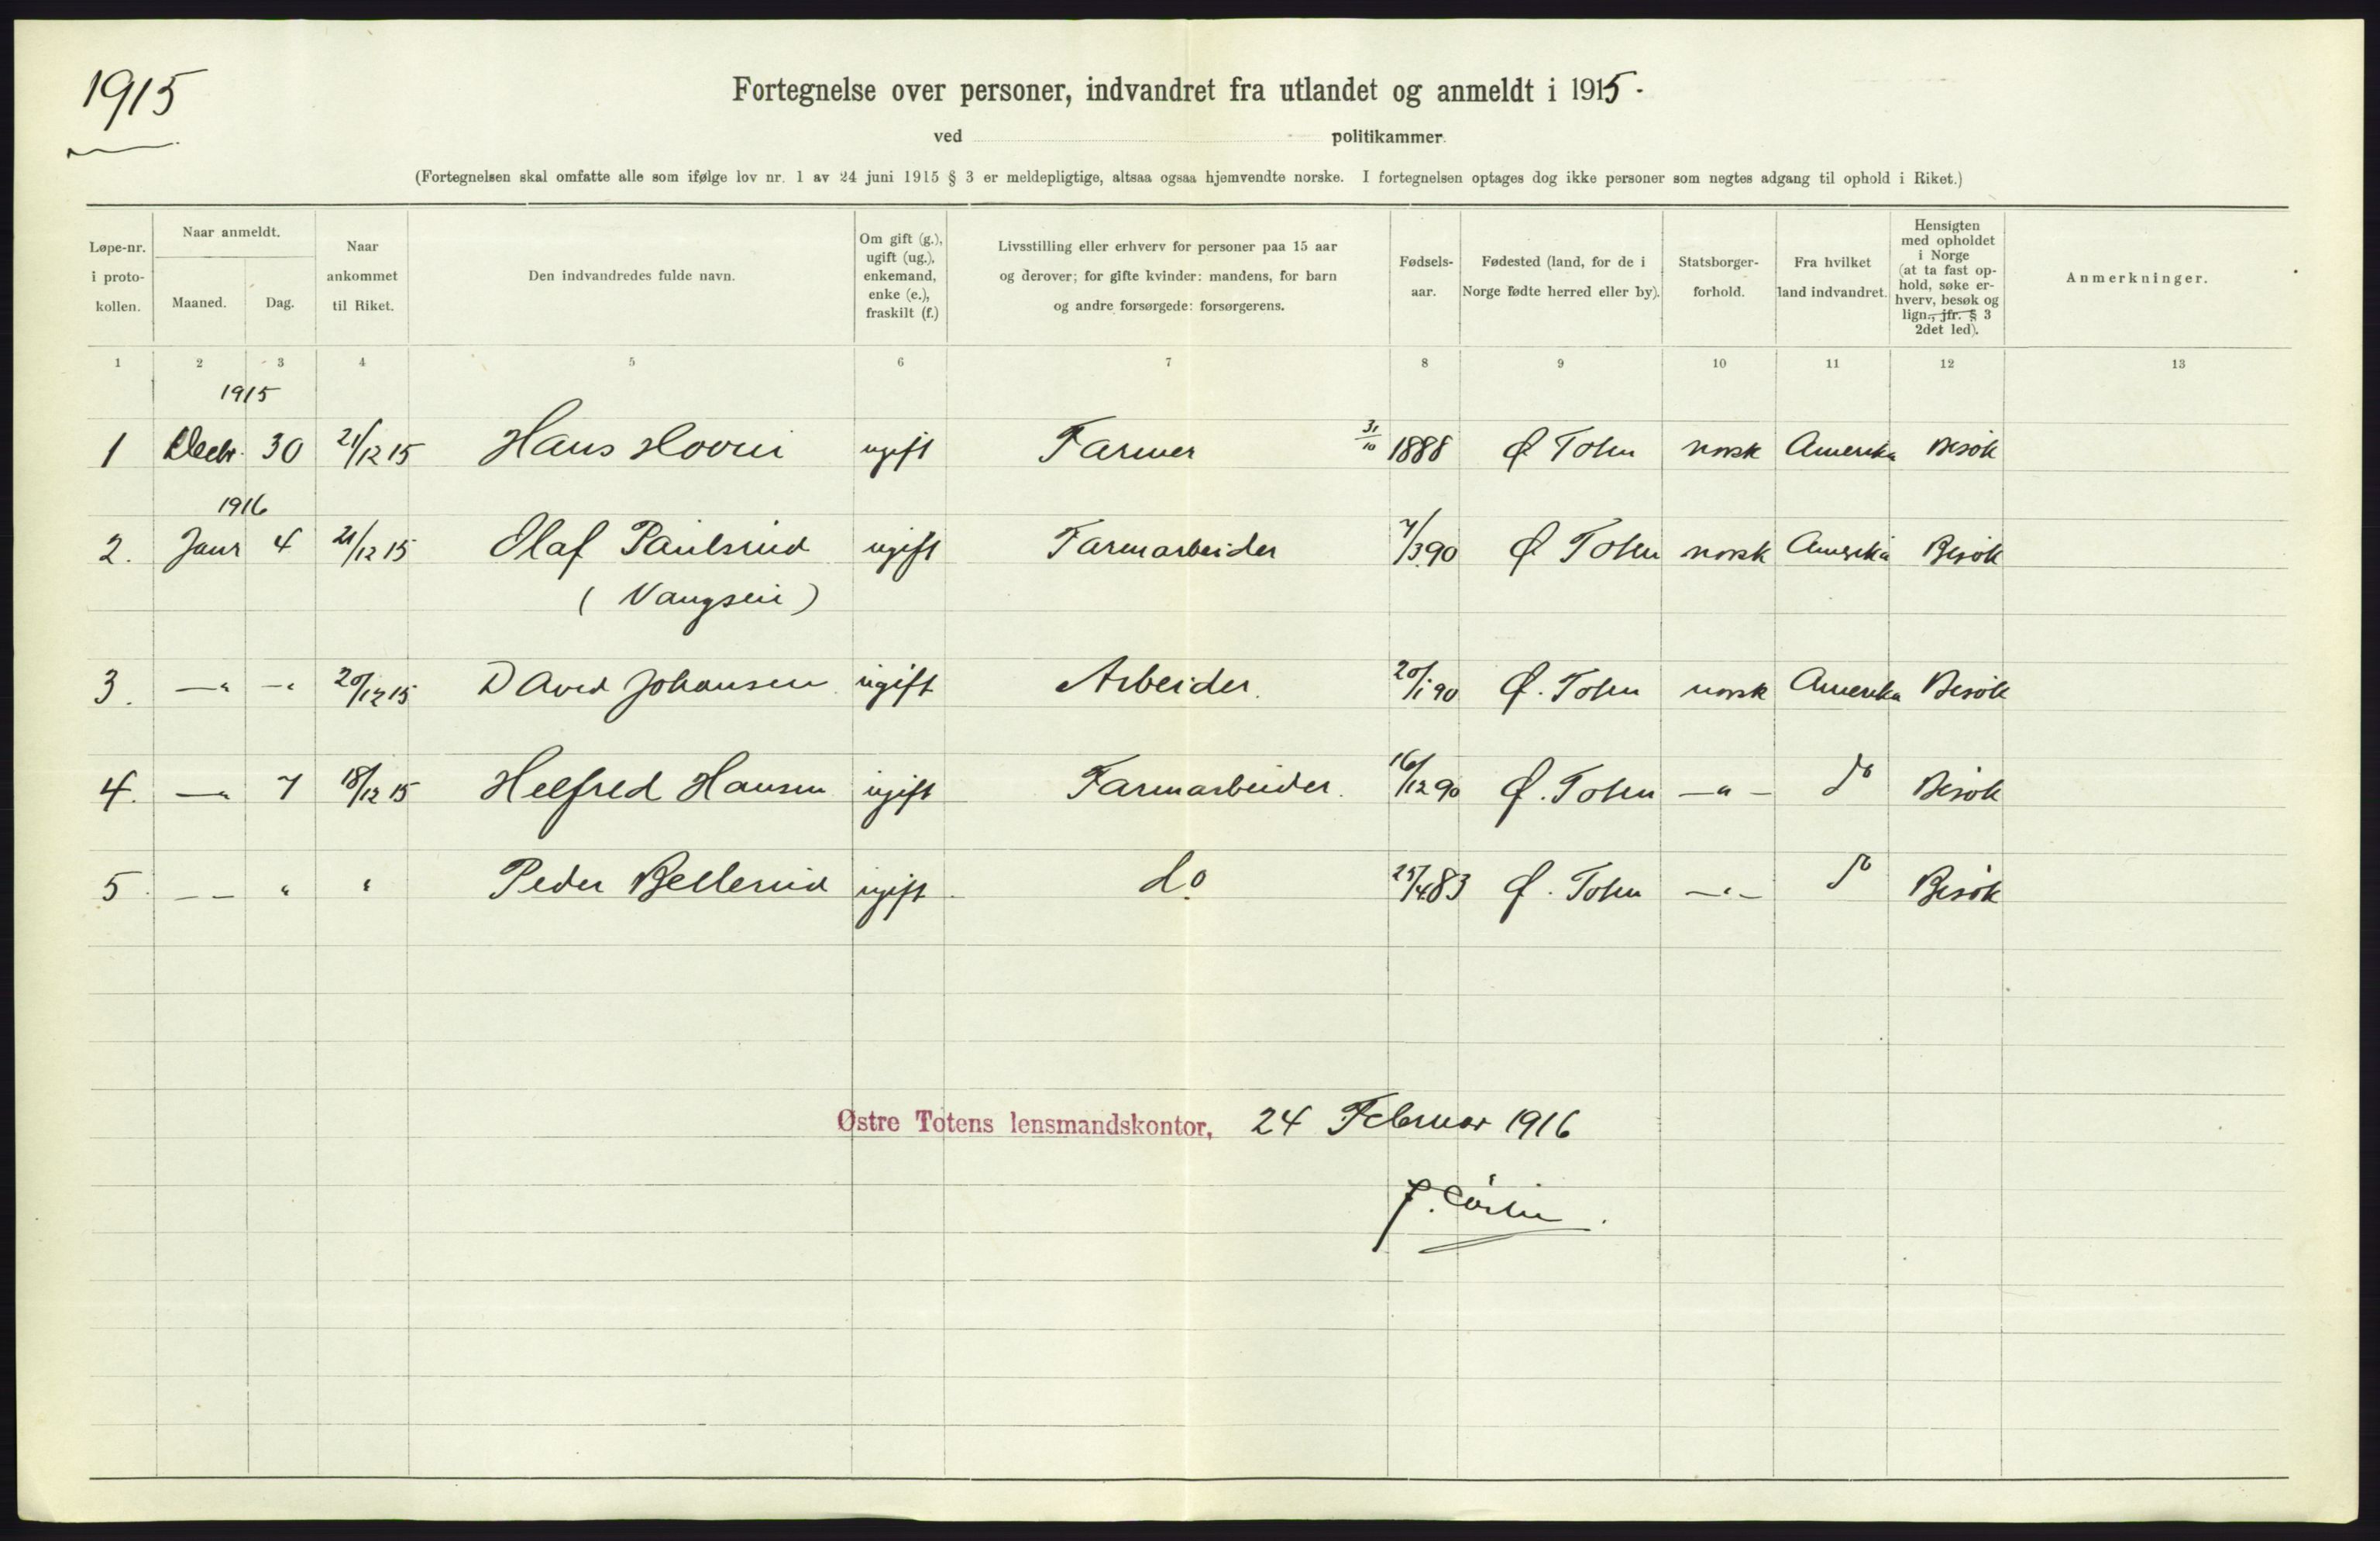 1915
Fortegnelse over personer, indvandret fra utlandet og anmeldt i 1915.
ved politikammer.
(Fortegnelsen skal omfatte alle som ifølge lov nr. 1 av 24 juni 1915 § 3 er meldepligtige, altsaa ogsaa hjemvendte norske. I fortegnelsen optages dog ikke personer som negtes adgang til ophold i Riket.)
Løpe-nr. i proto- kollen.
Naar anmeldt.
Maaned.
Dag.
Naar ankommet til Riket.
Den indvandredes fulde navn.
Om gift (g.), ugift (ug.), enkemand, enke (e.), fraskilt (f.)
Livsstilling eller erhverv for personer paa 15 aar og derover; for gifte kvinder: mandens, for barn og andre forsørgede: forsørgerens.
Fødsels- aar.
Fødested (land, for de i Norge fødte herred eller by).
Statsborger- forhold.
Fra hvilket land indvandret.
Hensigten med opholdet i Norge (at ta fast op- hold, søke er- hverv, besøk og lign., jfr. § 3 2det led).
Anmerkninger.
1 2 3 4 5 6 7 8 9 10 11 12 13
1915
1 Decbr. 30 21/12 15 Hans Hovni ugift Farmer 31/10 1888 Ø Toten norsk Amerika Besøk
1916
2. Janr 4 21/12 15 Olaf Paulsrud ugift Farmarbeider 7/3 90 Ø Toten norsk Amerika Besøk
( Vangsein )
3. —„ -„ 20/12 15 David Johansen ugift Arbeider. 20/1 90 Ø. Toten norsk Amerika Besøk
4. —„ 7 18/12 15 Helfred Hansen ugift Farmarbeider. 16/12 90 Ø. Toten —„— do Besøk
5. —— „ „ Peder Bellerud ugift do. 25/4 83 Ø. Toten —„— do Besøk
Østre Totens lensmandskontor, 24 Februar 1916